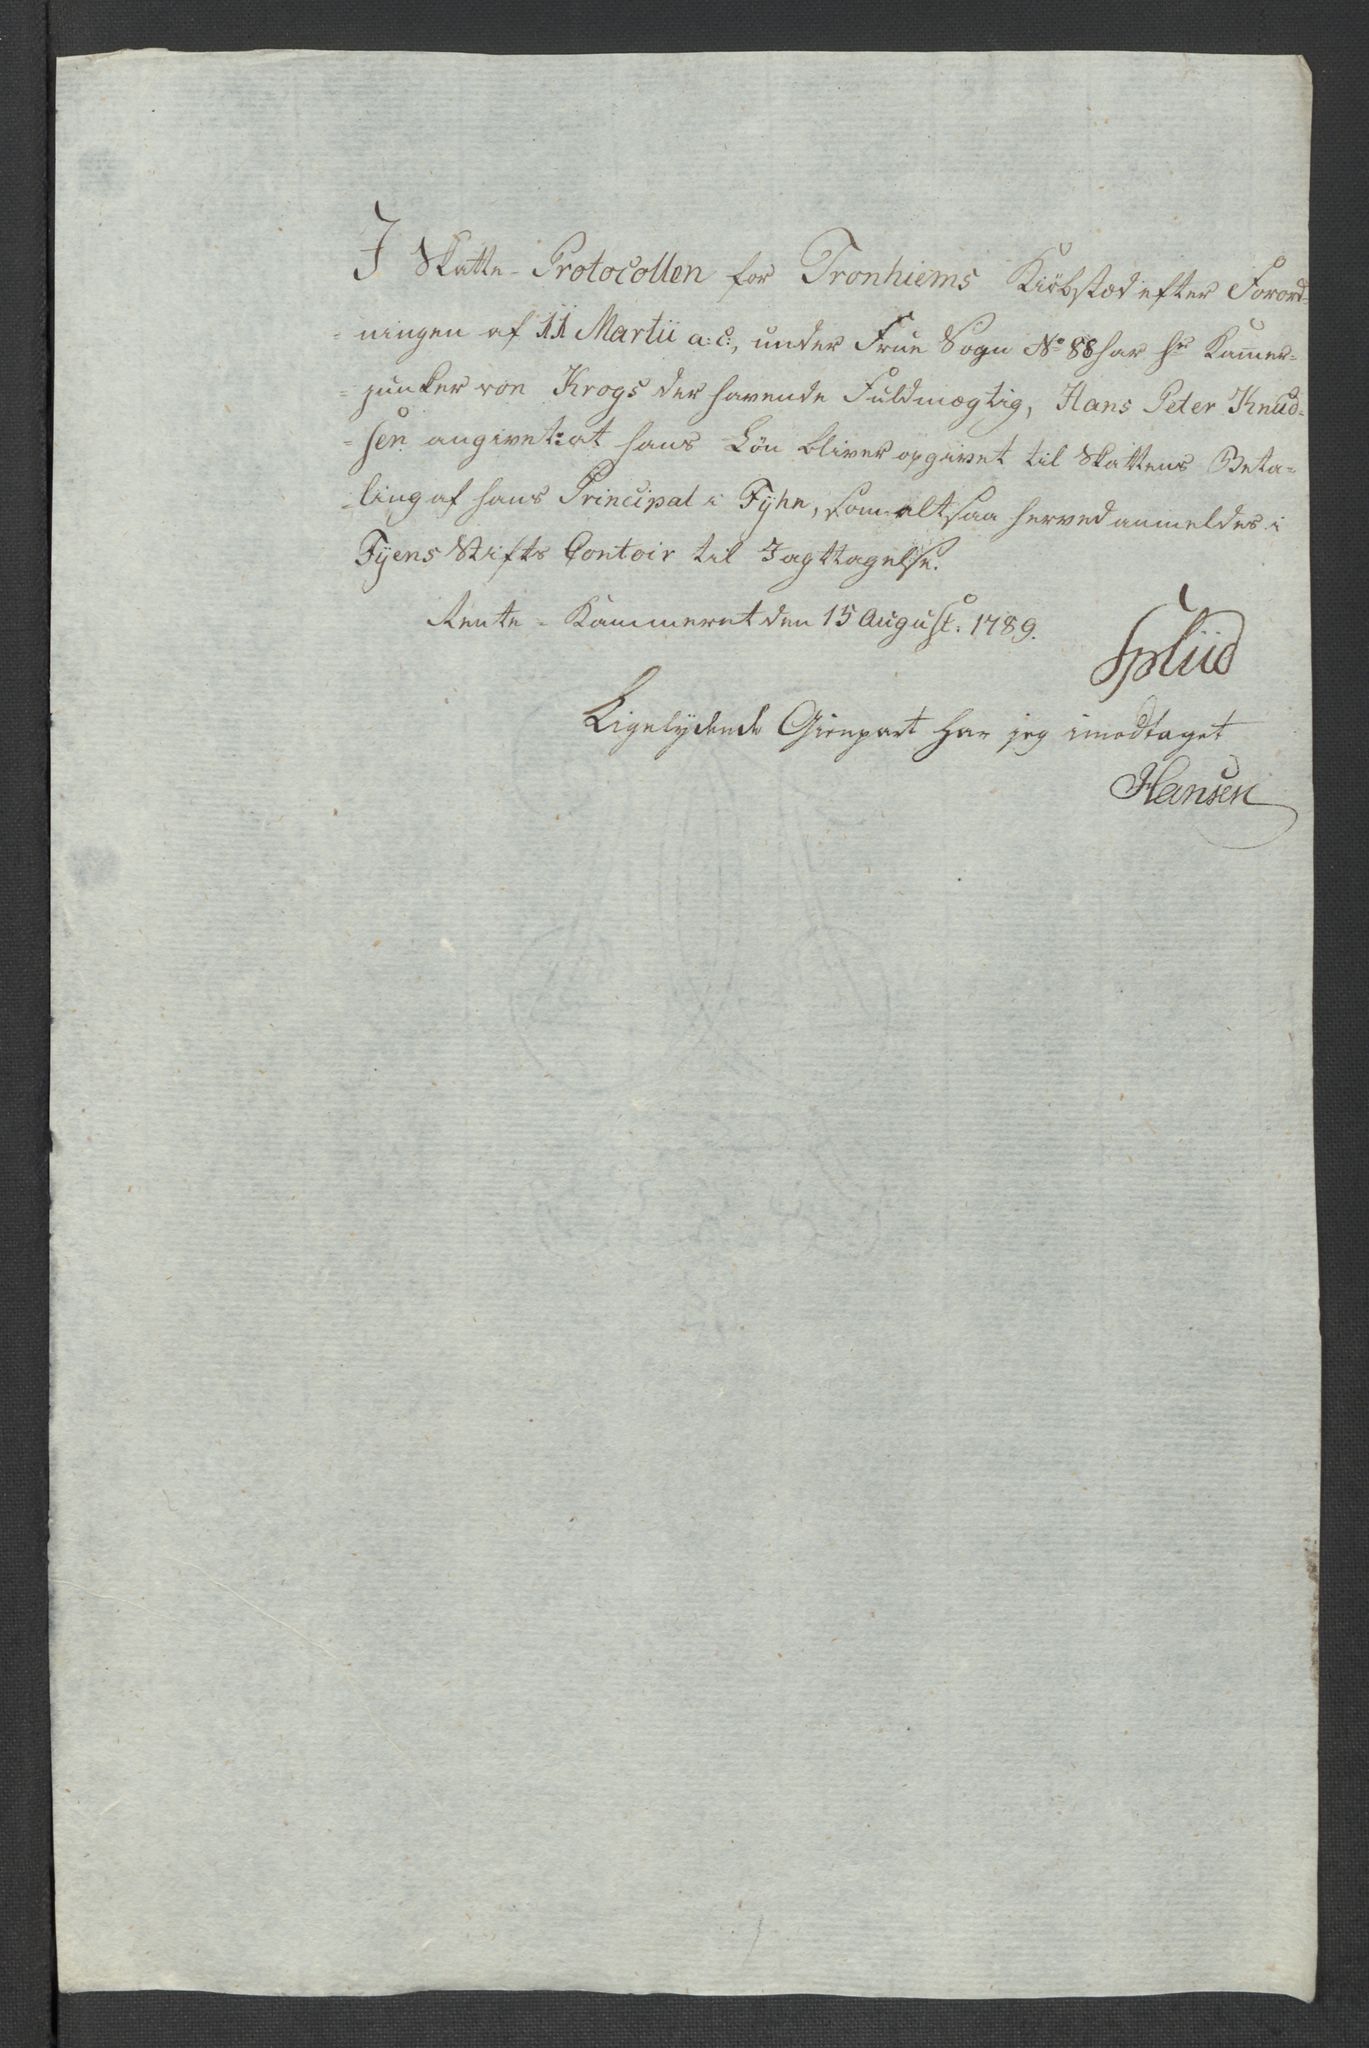 I Skatte-Protocollen for Tronhiems Kiöbstæd efter Forord-
-ningen af 11 Martii a: c:, under Frue Sogn No 88 har Hr Kam̅er-
-junker von Krogs der havende Fuldmægtig, Hans Peter Knud-
-sen angivet: at hans Lön bliver opgivet til Skattens Beta-
-ling af hans Principal i Fyhn, som altsaa herved anmeldes i
Fyens Stifts Contoir til Iagttagelse.
Rente-Kammeret den 15 August. 1789.
Spliid
Ligelydende Gienpart har jeg imodtaget
Hansen